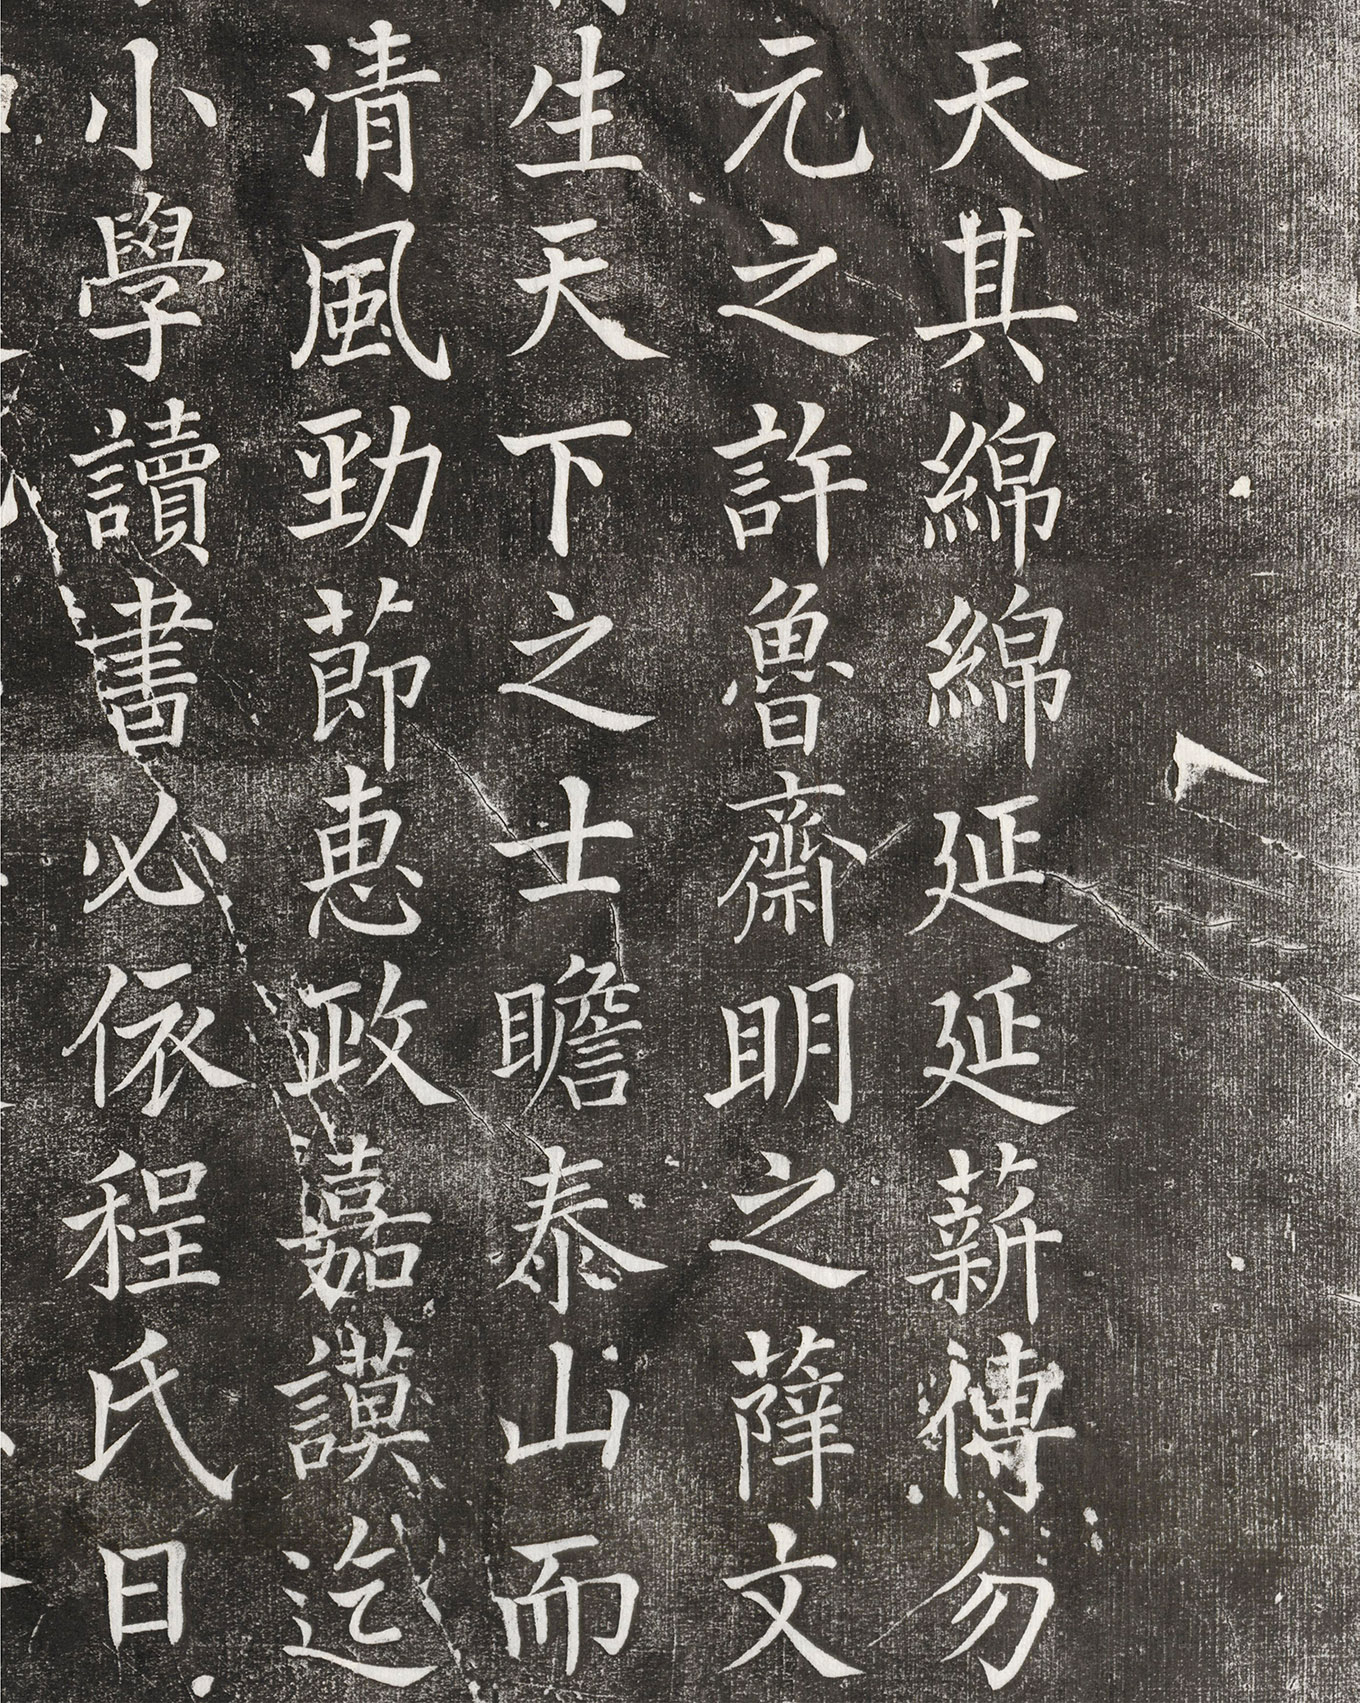 天其綿綿延延薪傳勿
元之許魯齋明之薛文
生天下之士瞻泰山而
清風勁節惠政嘉謨迄
小學讀書必依程氏日